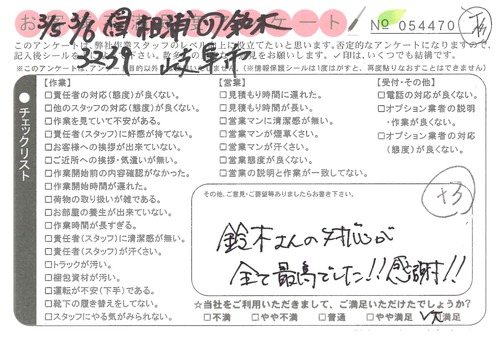 3/5 3/6 相浦 鈴木
お アンケート
№ 054470
3239 岐阜市
このアンケートは、弊社作業スタッフのレベル
役立てたいと思います。否定的なアンケートになりますので、
記入後シールを
※このアンケートは、
(※情報保護シールは1度はがすと、再度貼りなおすことはできません)
●チェックリスト
【作業】
□責任者の対応(態度)が良くない。
□他のスタッフの対応(態度)が良くない。
□作業を見ていて不安がある。
□責任者(スタッフ)に好感が持てない。
□お客様への挨拶が出来ていない。
□ご近所への挨拶・気遣いが無い。
□作業開始前の内容確認がなかった。
□作業開始時間が遅れた。
□荷物の取り扱いが雑である。
□お部屋の養生が出来ていない。
□作業時間が長すぎる。
□責任者(スタッフ)に清潔感が無い。
□責任者(スタッフ)が汗くさい。
□トラックが汚い。
□梱包資材が汚い。
□運転が不安(下手)である。
□靴下の履き替えをしてない。
□スタッフにやる気がみられない。
【営業】
□見積もり時間に遅れた。
□見積もり時間が長い。
□営業マンに清潔感が無い。
□営業マンが煙草くさい。
□営業マンが汗くさい。
□営業態度が良くない。
□営業の説明と作業が一致してない。
【受付・その他】
□電話の対応が良くない。
□オプション業者の説明
・作業が良くない。
□オプション業者の対応
(態度)が良くない。
その他、ご意見・ご要望等ありましたらお書き下さい。
+3
鈴木さんの対応が
全て最高でした!!感謝!!
☆当社をご利用いただきまして、ご満足いただけたでしょうか?
□不満 □やや不満 □普通 □やや満足 満足